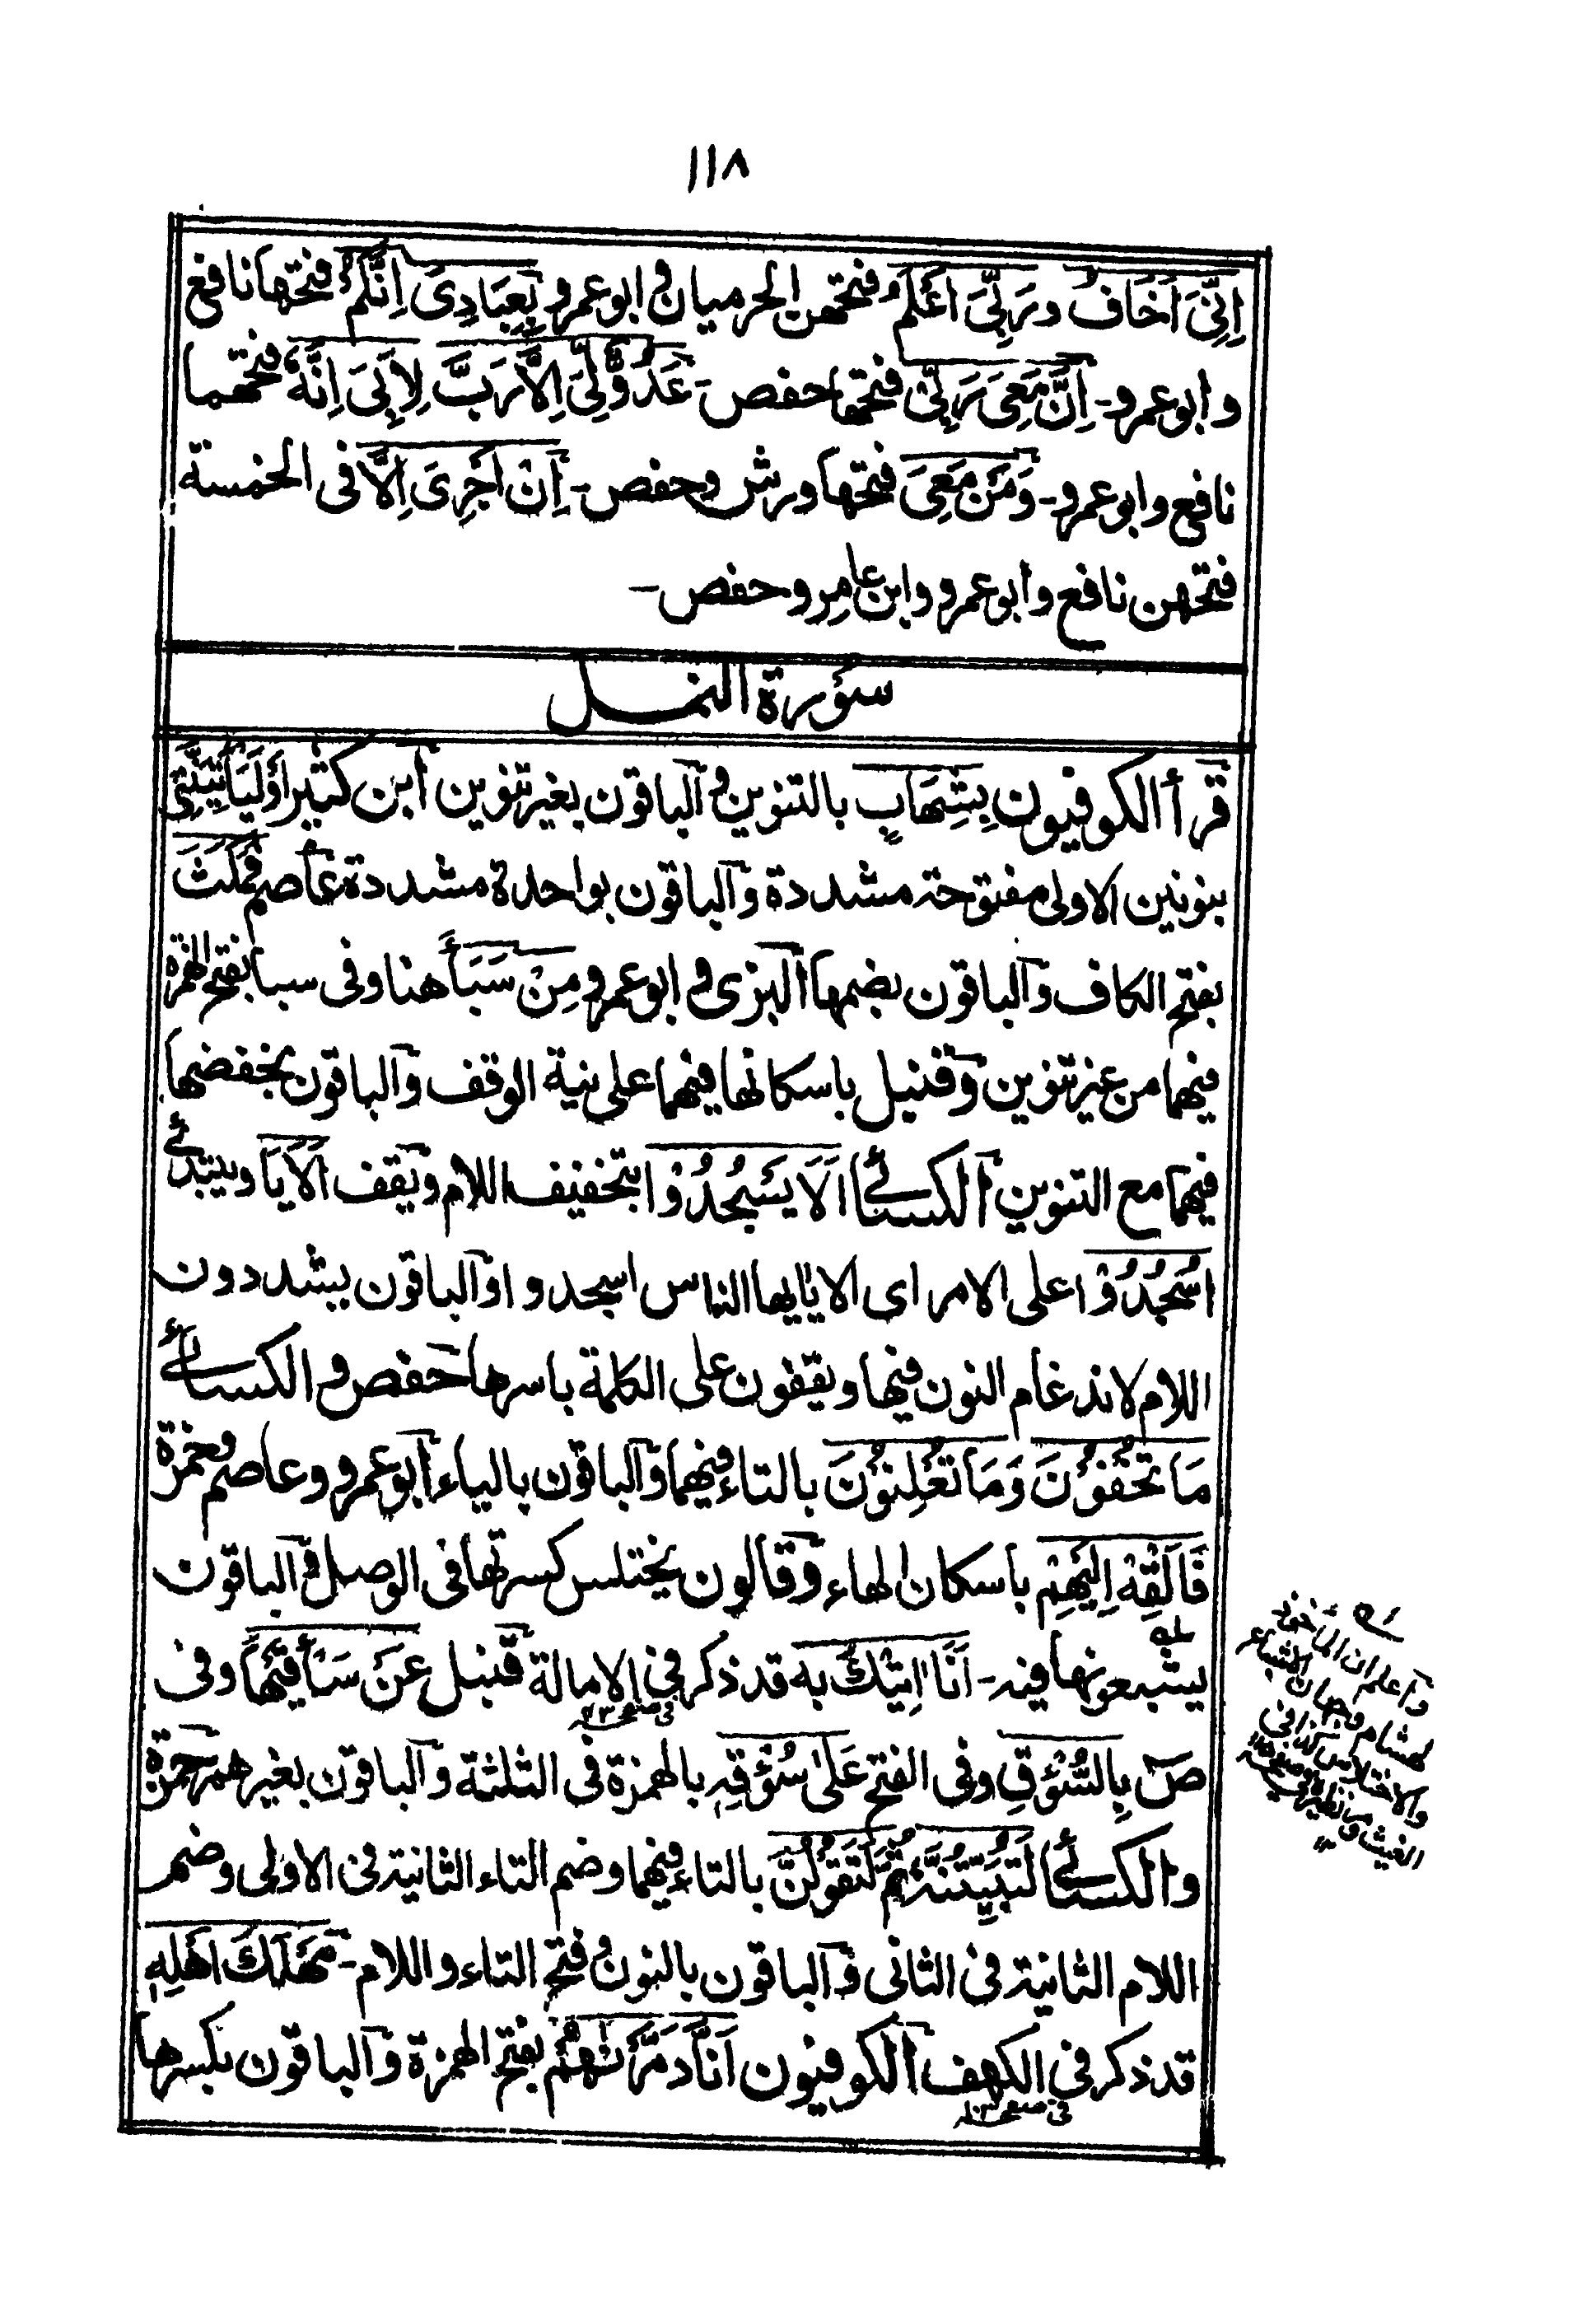 ١١٨
اِنِّىَ اَخَافُ ورَبِّىَ اَعْلَمُ فتحهن الحرميان و ابو عمرو بِعِبَادِىَ اِنَّكُمْ فتحها نافع
و ابو عمرو - اِنَّ مَعِىَ رَبِّىْ فتحها حفص - عَدُوٌّ لِّىَ اِلَّا رَبَّ لِاَبِىَ اِنَّهٗ فتحهما
نافع و ابو عمرو - وَمَنْ مَعِىَ فتحها ورش و حفص - اِنْ اَجْرِىَ اِلَّا فى الخمسة
فتحهن نافع و ابو عمرو و ابن عامر و حفص -
سورة النمل
قرأ الكوفيون بِشِهَابٍ بالتنوين و الباقون بغير تنوين ابن كثير اَوْ لَيَاْتِيَنَّنِىْ
بنونين الاولى مفتوحة مشددة و الباقون بواحدة مشددة عاصم فَمَكَثَ
بفتح الكاف و الباقون بضمها البزى و ابو عمرو مِنْ سَبَأَ هنا و فى سبا بفتح الهمزة
فيهما من غير تنوين و قنبل باسكانها فيهما على نية الوقف و الباقون بخفضها
فيهما مع التنوين الكسائى اَلَا يَسْجُدُوْا بتخفيف اللام و يقف اَلَا يَا و يبتدئ
اُسْجُدُوْا على الامر اى الا يايها الناس اسجدوا و الباقون يشددون
اللام لاندغام النون فيها و يقفون على الكلمة باسرها حفص و الكسائى
مَا تُخْفُوْنَ وَمَا تُعْلِنُوْنَ بالتاء فيهما و الباقون بالياء ابو عمرو و عاصم و حمزة
فَاَلْقِهْ اِلَيْهِمْ باسكان الهاء و قالون يختلس كسرتها فى الوصل و الباقون
يشبعونها فيه - اَنَا اٰتِيْكَ بِهٖ قد ذكر فى الامالة قنبل عَنْ سَأْقَيْهَا و فى
صٓ بِالسُّؤْقِ و فى الفتح عَلٰى سُؤْقِهٖ بالهمزة فى الثلثة و الباقون بغير همز حمزة
و الكسائى لَتُبَيِّتُنَّهٗ ثُمَّ لَتَقُوْلُنَّ بالتاء فيهما و ضم التاء الثانية فى الاولى و ضم
اللام الثانية فى الثانى و الباقون بالنون و فتح التاء و اللام - مَهْلَكَ اَهْلِهٖ
قد ذكر فى الكهف الكوفيون اَنَّا دَمَّرْنٰهُمْ بفتح الهمزة و الباقون بكسرها
واعلم ان الماخوذ
لهشام وجهان الاشباع
والاختلاس كذا فى